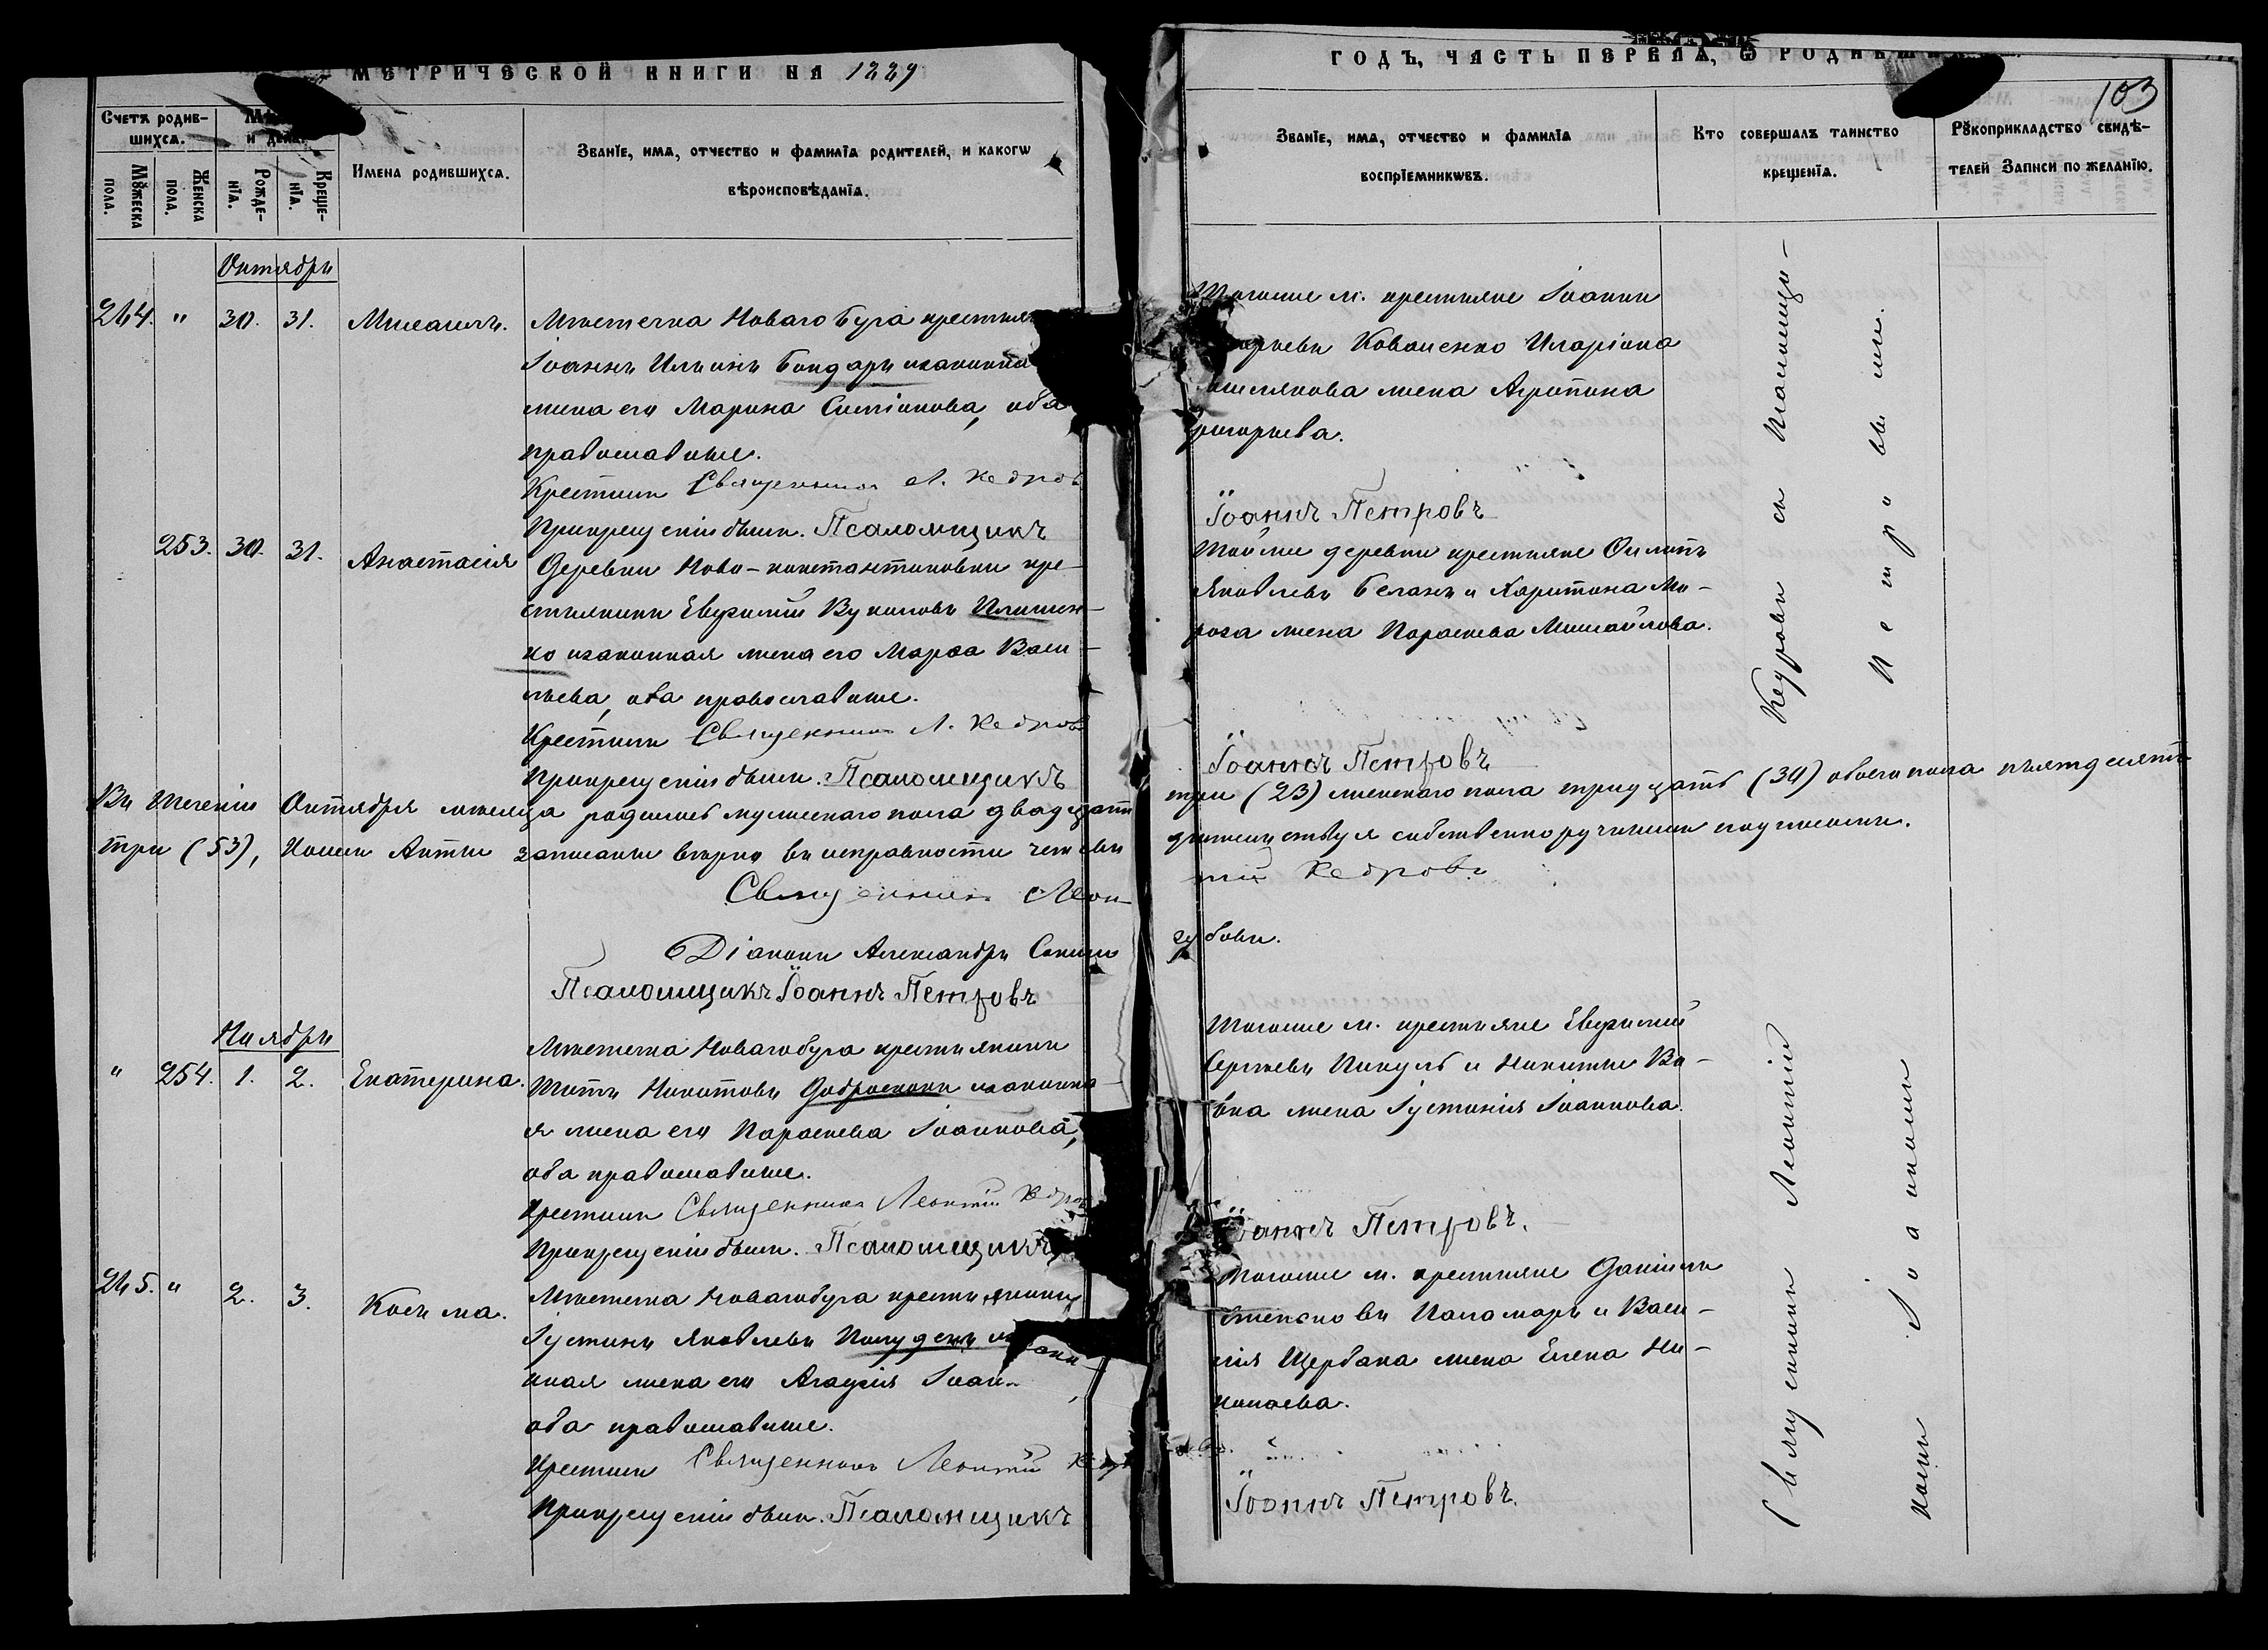 МЕТРИЧЕСКОЙ КНИГИ НА 1889
Счетъ родив-
шихся.
Мѹжеска
пола.
Женска
пола.
и день.
Рожде-
нїѧ.
Креще-
нїѧ.
Имена родившихсѧ.
Званїе, имѧ, отчество и фамилїѧ родителей, и какогѡ
вѣроисповѣданїѧ.
Октябрь
264. " 30. 31. Михаилъ.
Мѣстечка Новаго Буга крестьян
Іоаннъ Ильинъ Бондарь и законна
жена его Марина Симеонова, оба
православные.
Крестилъ Священникъ Л. Кедров
При крещеніи былъ. Псаломщикъ
253. 30. 31. Анастасія
Деревни Ново-константиновки кре-
стьянинъ Евфимій Вуколовъ Ильин-
ко и законная жена его Марѳа Васи-
льева, оба православные.
Крестилъ Священникъ Л. Кедров
При крещеніи былъ. Псаломщикъ
Въ теченіи Октября мѣсяца родилось мужескаго пола двадцать
три (53), Каковы Акты записаны вѣрно въ исправности чемъ и
Священникъ Леон-
Діаконъ Александръ
Псаломщикъ Іоаннъ Петровъ
Ноябрь
" 254. 1. 2. Екатерина.
Мѣстечка Новагобуга крестьянинъ
Титъ Никитовъ Доброскокъ и законна-
я жена его Параскева Іоаннова,
оба православные.
Крестилъ Священникъ Леонтій Кедров
При крещеніи былъ. Псаломщикъ
265. " 2. 3. Косьма.
Мѣстечка Новагобуга крестьянинъ
Іустинъ Яковлевъ Полуденъ и закон-
ная жена его Агафія Іоан-
оба православные.
Крестилъ Священникъ Леонтій Кед
При крещеніи былъ. Псаломщикъ
ГОДЪ, ЧАСТЬ ПЕРВАЯ, Ѡ РОДИВШИ
103
Званїе, имѧ, отчество и фамилїѧ
воспрїемникѡвъ.
Кто совершалъ таинство
крещенїѧ.
Рѹкоприкладство свидѣ-
телей записи по желанїю.
Тогоже м. крестьяне Іоаннъ
Коваленко Иларіона
жена Агрипина
григорьева.
Іоаннъ Петровъ
Тойже деревни крестьяне Филипъ
Яковлевъ Беланъ и Харитона Мо-
роза жена Параскева Михайлова.
Іоаннъ Петровъ
три (23) женскаго пола тридцать (30) обоего пола пятдесятъ
свидѣтельствуя собственноручнымъ подписомъ.
тій Кедровъ
зубовъ.
Тогоже м. крестьяне Евфимій
Сергѣевъ Пикуль и Никиты Во-
вка жена Іустинія Іоаннова.
Іоаннъ Петровъ.
Тогоже м. крестьяне Даніилъ
Стефановъ Паламарь и Васи-
лія Щербака жена Елена Ни-
колаева.
Іоаннъ Петровъ.
Кедровъ съ Псаломщи-
Петровымъ.
Священникъ Леонтій
комъ Іоанномъ